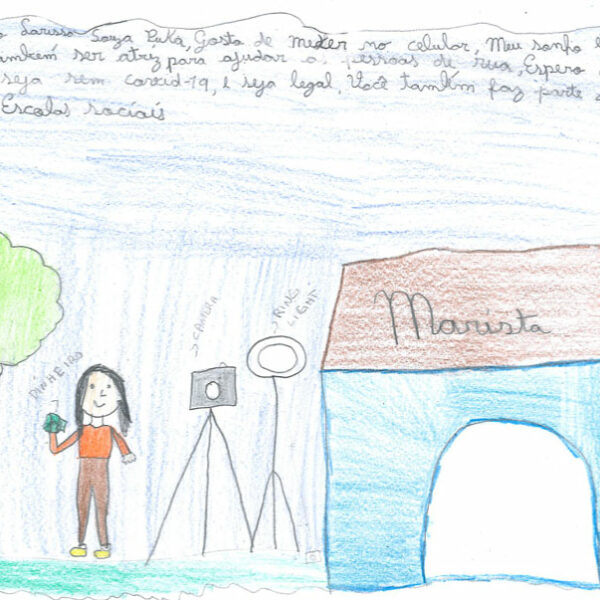 Larissa Souza Puka, Gosto de mexer no celular, Meu sonho
também ser atriz para ajudar as pessoas de rua, Espero
seja sem covid-19, e seja legal, Você também faz parte
Escolas sociais
DINHEIRO
CAMERA
RING
LIGHT
Marista